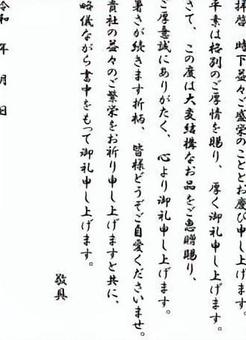 拝啓　時下益々ご盛栄のこととお慶び申し上げます。
平素は格別のご厚情を賜り、厚く御礼申し上げます。
さて、この度は大変結構なお品をご恵贈賜り、
ご厚意誠にありがたく、心より御礼申し上げます。
暑さが続きます折柄、皆様どうぞご自愛くださいませ。
貴社の益々のご繁栄をお祈り申し上げますと共に、
略儀ながら書中をもって御礼申し上げます。
敬具
令和　年　月　日